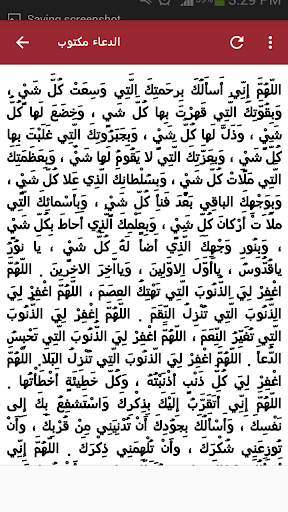 Saving screenshot...
53%
3:29 PM
الدعاء مكتوب
اللَّهُمَّ إِنِّي أَسأَلُكَ بِرَحمَتِكَ الَّتِي وَسِعَتْ كُلَّ شَيْ ،
وَبِقُوَّتِكَ الَّتِي قَهَرْتَ بِها كُلَّ شَيْ ، وَخَضَعَ لَها كُلُّ
شَيْ ، وَذَلَّ لَها كُلُّ شَيْ ، وَبِجَبَرُوتِكَ الَّتِي غَلَبْتَ بِها
كُلَّ شَيْ ، وَبِعِزَّتِكَ الَّتِي لا يَقُومُ لَها شَيْ ، وَبِعَظَمَتِكَ
الَّتِي مَلَأَتْ كُلَّ شَيْ ، وَبِسُلْطانِكَ الَّذِي عَلا كُلَّ شَيْ ،
وَبِوَجْهِكَ الباقِي بَعْدَ فَنأِ كُلِّ شَيْ ، وَبِأَسْمائِكَ الَّتِي
مَلأَ تْ أَرْكانَ كُلِّ شَيْ ، وَبِعِلْمِكَ الَّذِي أَحاطَ بِكُلِّ
شَيْ ، وَبِنُورِ وَجْهِكَ الَّذِي أَضاَ لَهُ كُلُّ شَيْ ، يا نُورُ
ياقُدُّوسُ ، ياأَوَّلَ الاَوَّلِينَ ، وَياآخِرَ الآخِرِينَ . اللّهُمَّ
اغْفِرْ لِيَ الذُّنُوبَ الَّتِي تَهْتِكُ العِصَمَ . اللّهُمَّ اغْفِرْ لِيَ
الذُّنُوبَ الَّتِي تُنْزِلُ النِّقَمَ . اللّهُمَّ اغْفِرْ لِيَ الذُّنُوبَ
الَّتِي تُغَيِّرُ النِّعَمَ ، اللّهُمَّ اغْفِرْ لِيَ الذُّنُوبَ الَّتِي تَحْبِسُ
الدُّعاَ . اللّهُمَّ اغْفِرْ لِيَ الذُّنُوبَ الَّتِي تُنْزِلُ البَلاَ. اللّهُمَّ
اغْفِرْ لِي كُلَّ ذَنْبٍ أَذْنَبْتُهُ ، وَكُلَّ خَطِيئَةٍ أَخْطَأْتُها .
اللّهُمَّ إِنِّي أَتَقَرَّبُ إِلَيْكَ بِذِكْرِكَ وَاسْتَشْفِعُ بِكَ إِلى
نَفْسِكَ ، وَأَسْأَلُكَ بِجُودِكَ أَنْ تُدْنِيَنِي مِنْ قُرْبِكَ ، وَأَنْ
تُوزِعَنِي شُكْرَكَ ، وَأَنْ تُلْهِمَنِي ذِكْرَكَ . اللّهُمَّ إِنِّي